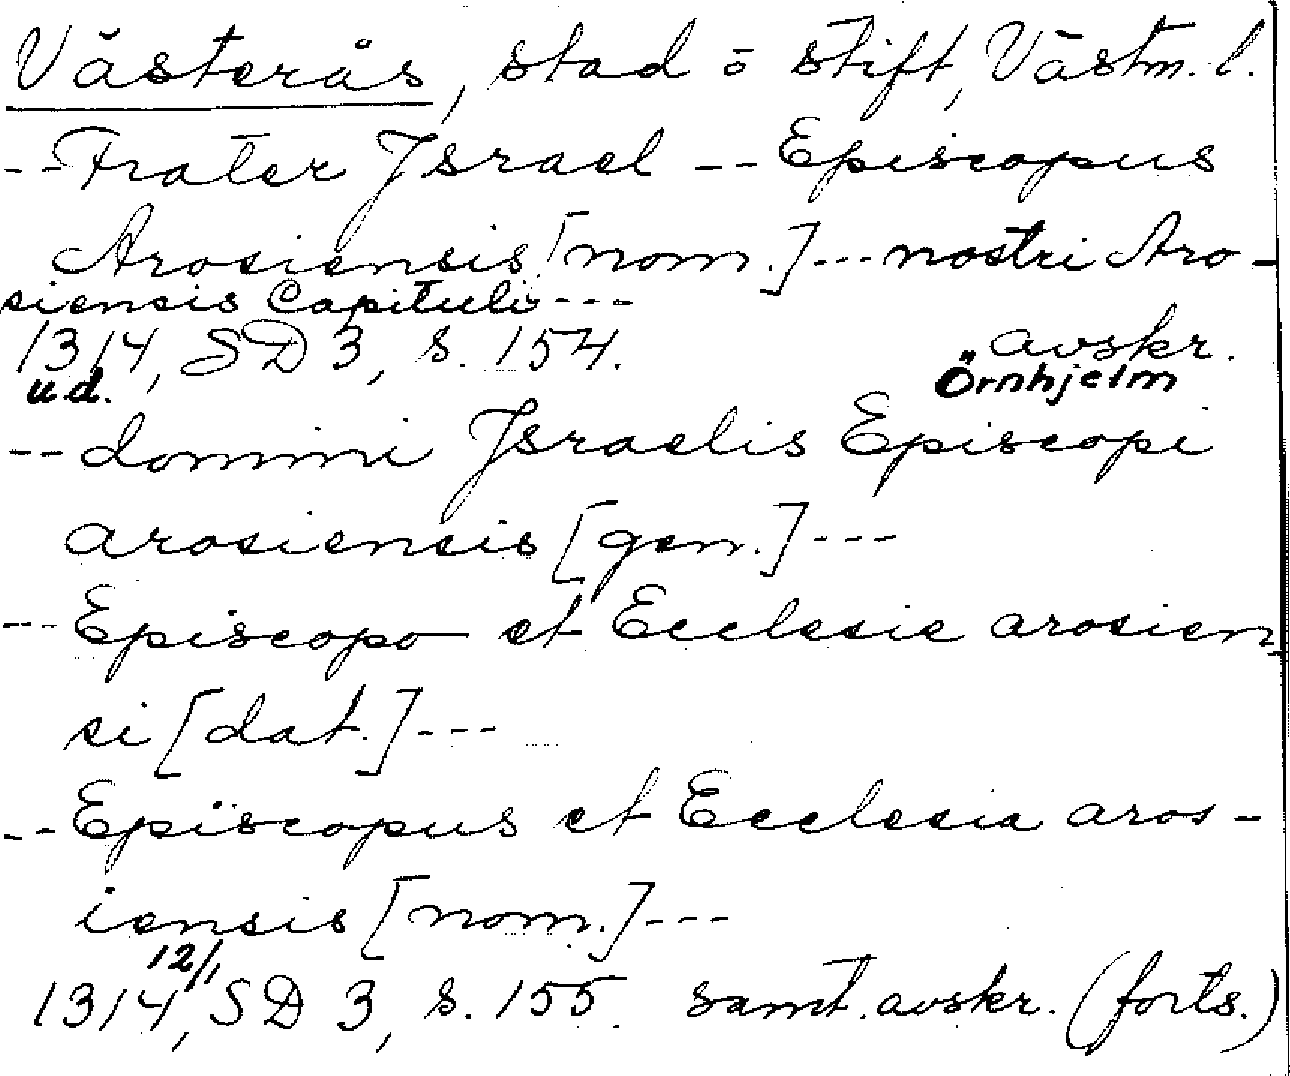 Västerås, stad o stift, Västm. l.
-- Frater Israel -- Episcopus
Arosiensis [nom.] --- nostri Aro-
siensis Capituli ---
1314, SD 3, s. 154. avskr.
u.d. Örnhjelm
-- domini Israelis Episcopi
arosiensis [gen.] ---
--- Episcopo et Ecclesie arosien-
si [dat.] ---
-- Episcopus et Ecclesia aros-
iensis [nom.] ---
1314 12/1, SD 3, s. 155. samt. avskr. (forts.)